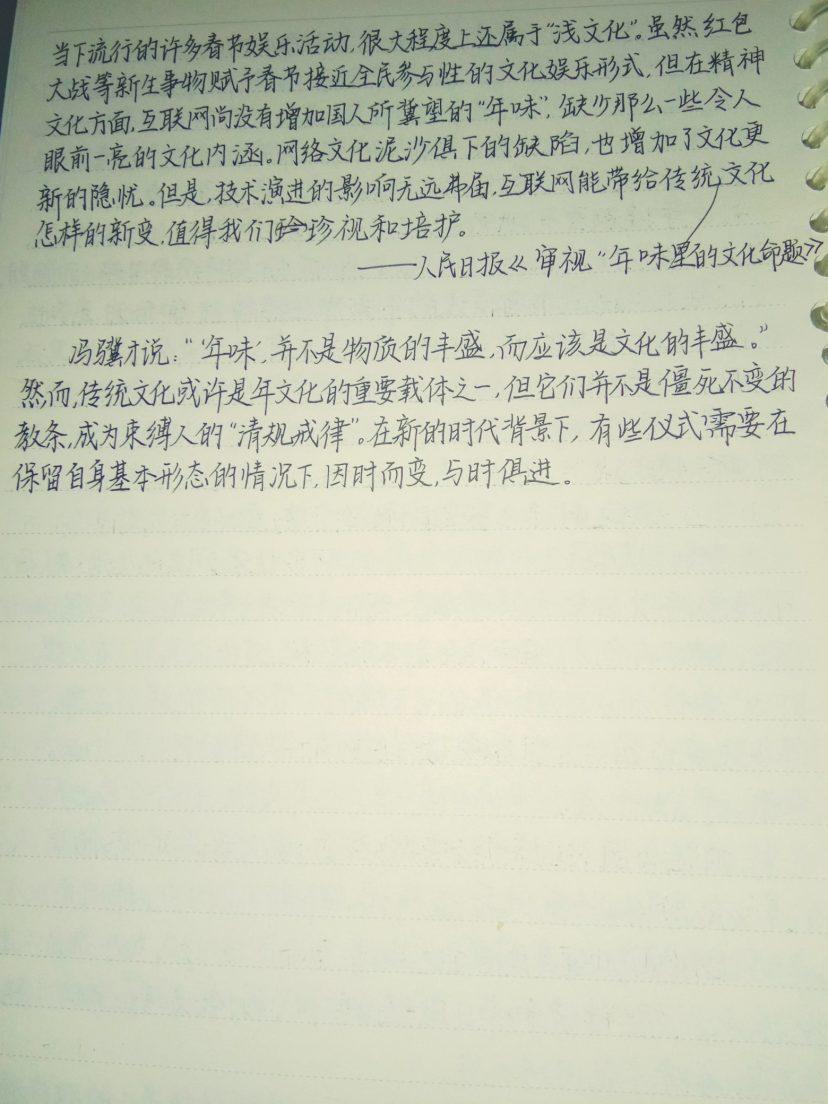 当下流行的许多春节娱乐活动,很大程度上还属于“浅文化”。虽然红包
大战等新生事物赋予春节接近全民参与性的文化娱乐形式,但在精神
文化方面,互联网尚没有增加国人所冀望的“年味”,缺少那么一些令人
眼前一亮的文化内涵。网络文化泥沙俱下的缺陷,也增加了文化更
新的隐忧。但是,技术演进的影响无远弗届,互联网能带给传统文化
怎样的新变,值得我们珍视和培护。
——人民日报《审视“年味里的文化命题》
冯骥才说:“‘年味’,并不是物质的丰盛,而应该是文化的丰盛。”
然而,传统文化或许是年文化的重要载体之一,但它们并不是僵死不变的
教条,成为束缚人的“清规戒律”。在新的时代背景下,有些仪式需要在
保留自身基本形态的情况下,因时而变,与时俱进。